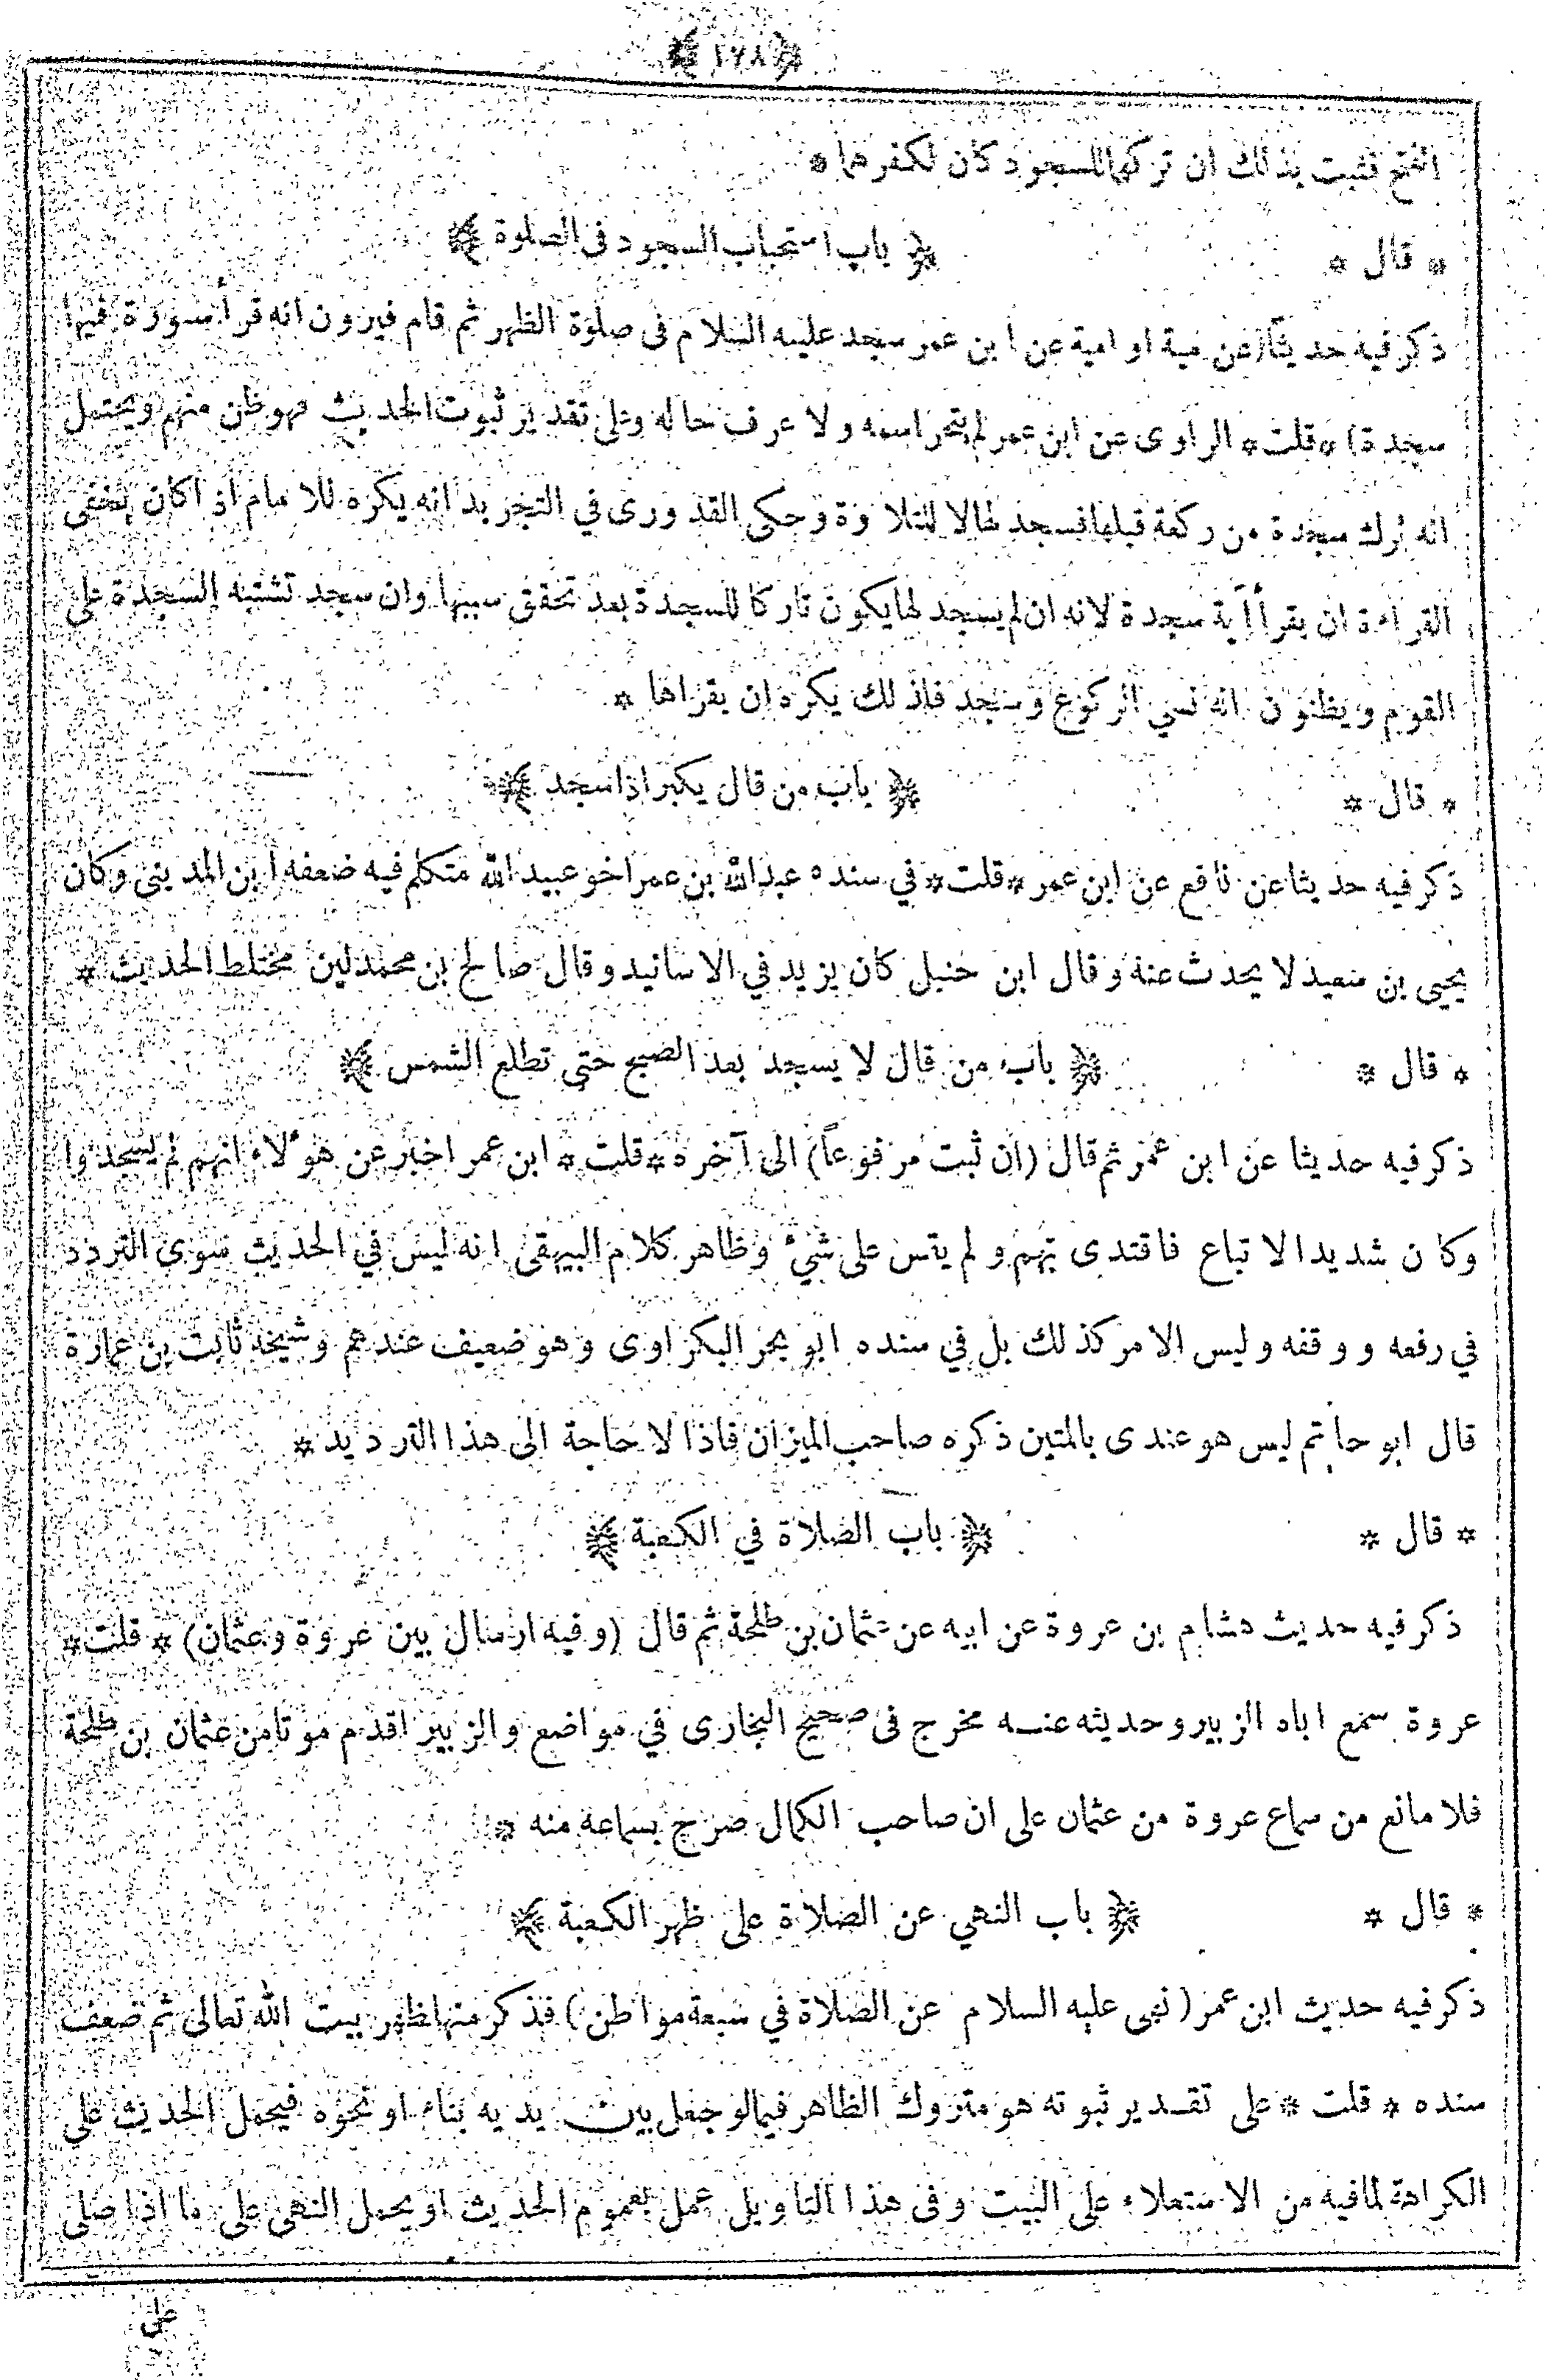 ﴿ ١٧٨ ﴾
الفتح فثبت بذلك ان تركها للسجود كان لكفرهما *
* قال * ﴿ باب استحباب السجود فى الصلوة ﴾
ذكر فيه حديثا (عن مية او امية عن ابن عمر سجد عليه السلام فى صلوة الظهر ثم قام فيرون انه قرأ سورة فيها
سجدة) * قلت * الراوى عن ابن عمر لم يتحر اسمه ولا عرف حاله وعلى تقدير ثبوت الحديث فهو ظن منهم ويحتمل
انه ترك سجدة من ركعة قبلها فسجد لها لا للتلاوة وحكى القدورى في التجريد انه يكره للامام اذا كان يخفى
القراءة ان يقرأ آية سجدة لانه ان لم يسجد لها يكون تاركا للسجدة بعد تحقق سببها وان سجد تشتبه السجدة على
القوم ويظنون انه نسي الركوع وسجد فلذلك يكره ان يقراها *
* قال * ﴿ باب من قال يكبر اذا سجد ﴾
ذكر فيه حديثا عن نافع عن ابن عمر * قلت * في سنده عبد الله بن عمر اخو عبيد الله متكلم فيه ضعفه ابن المدينى وكان
يحيى بن سعيد لا يحدث عنه وقال ابن حنبل كان يزيد في الاسانيد وقال صالح بن محمد لين مختلط الحديث *
* قال * ﴿ باب من قال لا يسجد بعد الصبح حتى تطلع الشمس ﴾
ذكر فيه حديثا عن ابن عمر ثم قال (ان ثبت مرفوعاً) الى آخره * قلت * ابن عمر اخبر عن هؤلاء انهم لم يسجدوا
وكان شديد الاتباع فاقتدى بهم ولم يقس على شئ وظاهر كلام البيهقى انه ليس في الحديث سوى التردد
في رفعه ووقفه وليس الامر كذلك بل في سنده ابو بحر البكراوى وهو ضعيف عندهم وشيخه ثابت بن عمارة
قال ابو حاتم ليس هو عندى بالمتين ذكره صاحب الميزان فاذا لا حاجة الى هذا الترديد *
* قال * ﴿ باب الصلاة في الكعبة ﴾
ذكر فيه حديث هشام بن عروة عن ابيه عن عثمان بن طلحة ثم قال (وفيه ارسال بين عروة وعثمان) * قلت *
عروة سمع اباه الزبير وحديثه عنه مخرج فى صحيح البخارى في مواضع والزبير اقدم موتا من عثمان بن طلحة
فلا مانع من سماع عروة من عثمان على ان صاحب الكمال صرح بسماعه منه *
* قال * ﴿ باب النهي عن الصلاة على ظهر الكعبة ﴾
ذكر فيه حديث ابن عمر (نهى عليه السلام عن الصلاة في سبعة مواطن) فذكر منها ظهر بيت الله تعالى ثم ضعف
سنده * قلت * على تقدير ثبوته هو متروك الظاهر فيما لو جعل بين يديه بناء او نحوه فيحمل الحديث على
الكراهة لما فيه من الاستعلاء على البيت وفى هذا التاويل عمل بعموم الحديث او يحمل النهى على ما اذا صلى
على